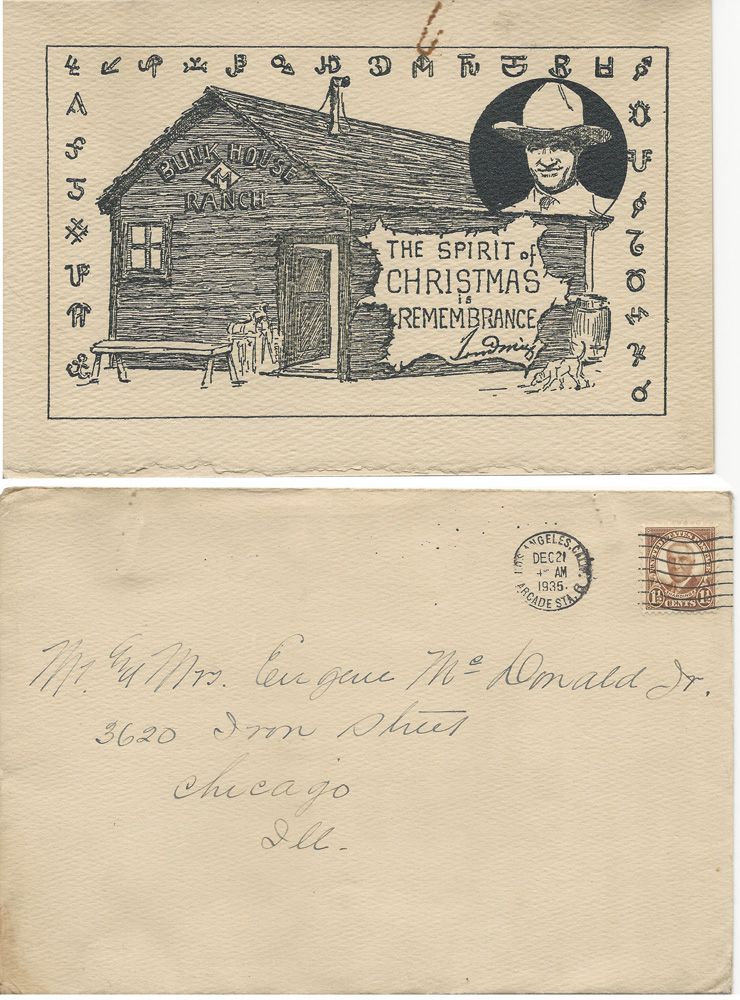 BUNK HOUSE
44
RANCH
THE SPIRIT of
CHRISTMAS
is
REMEMBRANCE
LOS ANGELES, CALIF.
DEC 21
AM
1935
ARCADE STA.
UNITED STATES POSTAGE
HARDING
1½ CENTS 1½
Mr. & Mrs. Eugene Mc Donald Jr.
3620 Iron Street
Chicago
Ill.